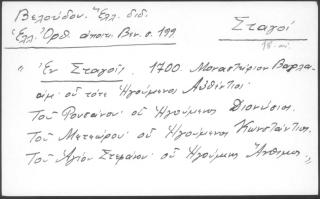 Βελούδου. Ἕλλ. διδ.
Σταγοί
Ἑλλ. Ὀρθ. ἀποικ. Βεν. σ. 199
18-αι.
" Ἐν Σταγοῖς 1700. Μοναστήριον Βαρλα.
αἰμ· οὗ τότε Ἡγούμενος Αὐθέντιος
Τοῦ Ρουσάνου· οὗ Ἡγούμενος Διονύσιος.
Τοῦ Μετεώρου· οὗ Ἡγούμενος Κωνστάντιος.
Τοῦ Ἁγίου Στεφάνου· οὗ Ἡγούμενος Ἄνθιμος "